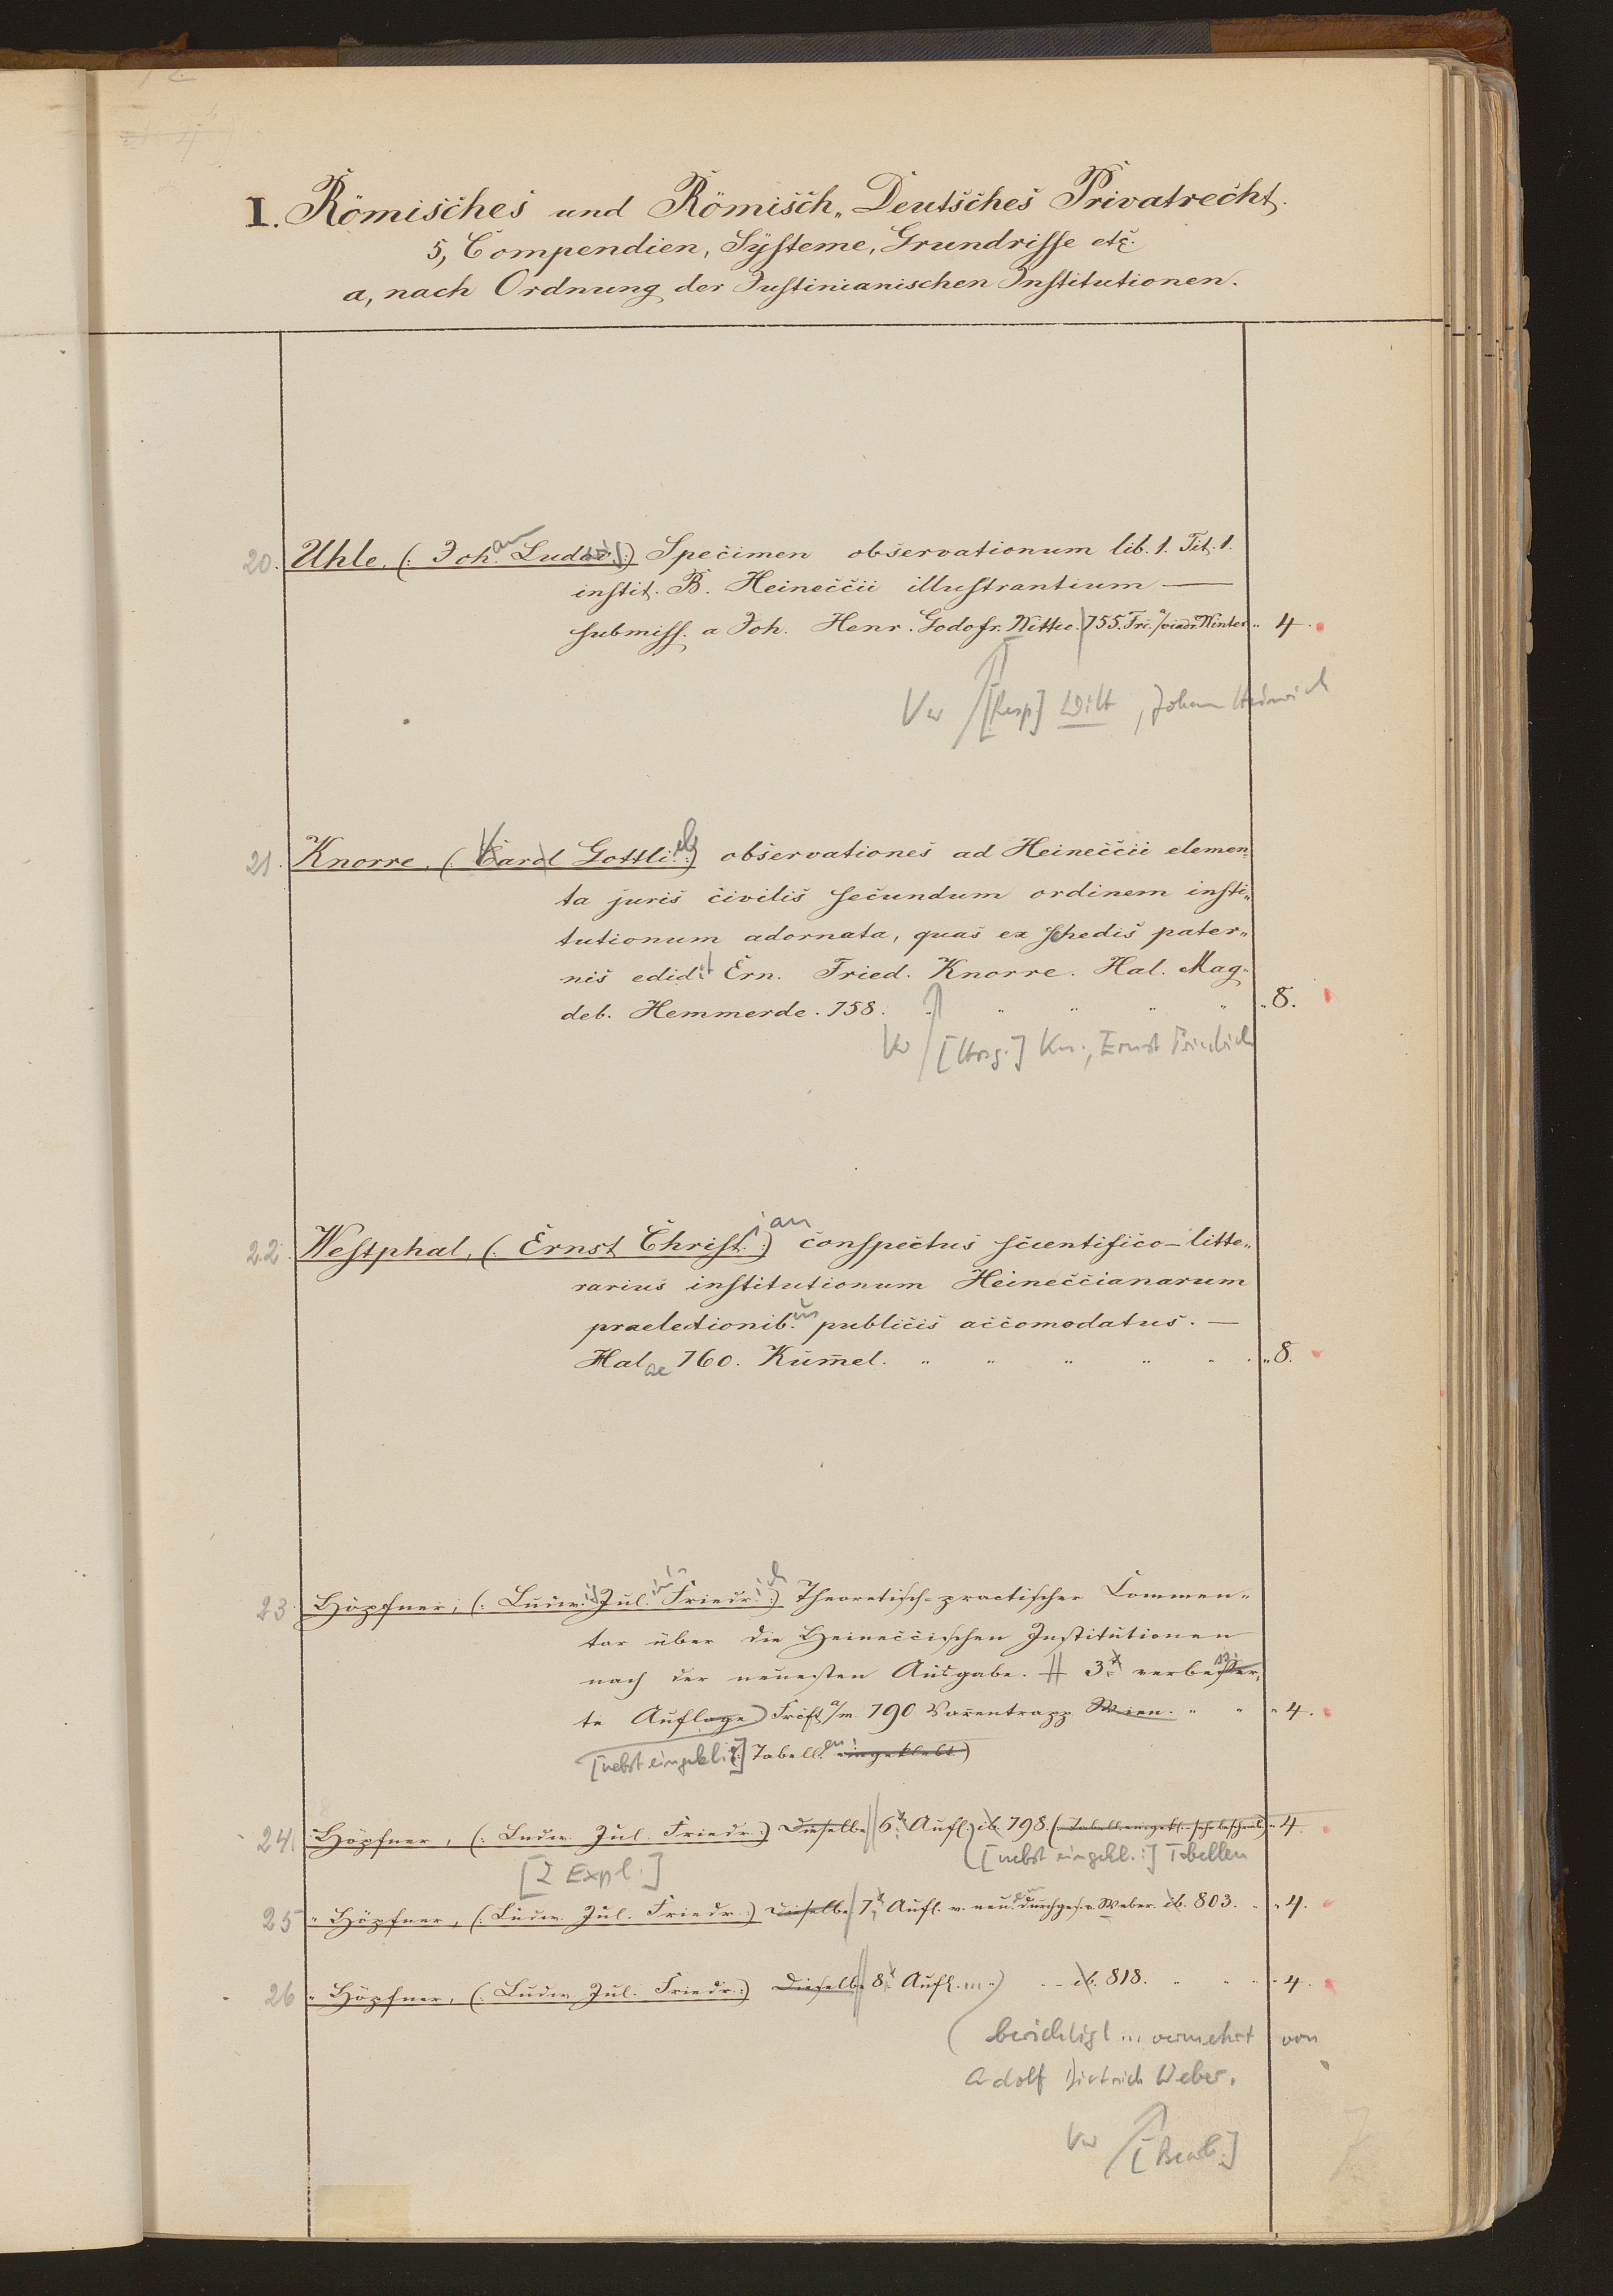 I. Römisches und Römisch„Deutsches Privatrecht.
5, Compendien, Systeme, Grundrisse etc.
a, nach Ordnung der Justinianischen Institutionen.
20. Uhle, (: Joh. Ludov. :) Specimen observationum lib. 1. Tit. 1.
instit. B. Heineccii illustrantium —
submiss. a Joh. Henr. Godofr. Witte. 755. Frc. a/viadr. Winter „ 4.
Vw [Resp.] Witt, Johann Heinrich
21. Knorre, (: Carol Gottlieb :) observationes ad Heineccii elemen„
ta juris civilis secundum ordinem insti„
tutionum adornata, quas ex schedis pater„
nis edidit Ern. Fried. Knorre. Hal. Mag„
deb. Hemmerde. 758. „ „ „ „ „ 8.
Vw [Hrsg.] Kn., Ernst Friedrich
22. Westphal, (: Ernst Christian :) conspectus scientifico-litte„
rarius institutionum Heineccianarum
praelectionibus publicis accomodatus. —
Halae 760. Kümmel. „ „ „ „ „ „ 8.
23. Höpfner, (: Ludw. Jul. Friedr. :) Theoretisch-practischer Commen„
tar über die Heineccischen Institutionen
nach der neuesten Ausgabe. 3. verbesser„
te Auflage Frcft a/m. 790 Varrentrapp Wien. „ „ „ 4.
[nebst eingekl.:] Tabellen eingeklebt.)
24. Höpfner, (: Ludw. Jul. Friedr. :) Dieselbe 6. Aufl. ib. 798. „ 4
[2 Expl.] [nebst eingekl.:] Tabellen
25 „ Höpfner, (: Ludw. Jul. Friedr. :) Dieselbe 7. Aufl. v. neu. durchges. v. Weber. ib. 803. „ „ 4.
26 „ Höpfner, (: Ludw. Jul. Friedr. :) Dieselbe 8. Aufl. „ ib. 818. „ „ „ „ 4.
berichtigt ... vermehrt von
Adolf Dietrich Weber.
Vw [Bearb.]
7